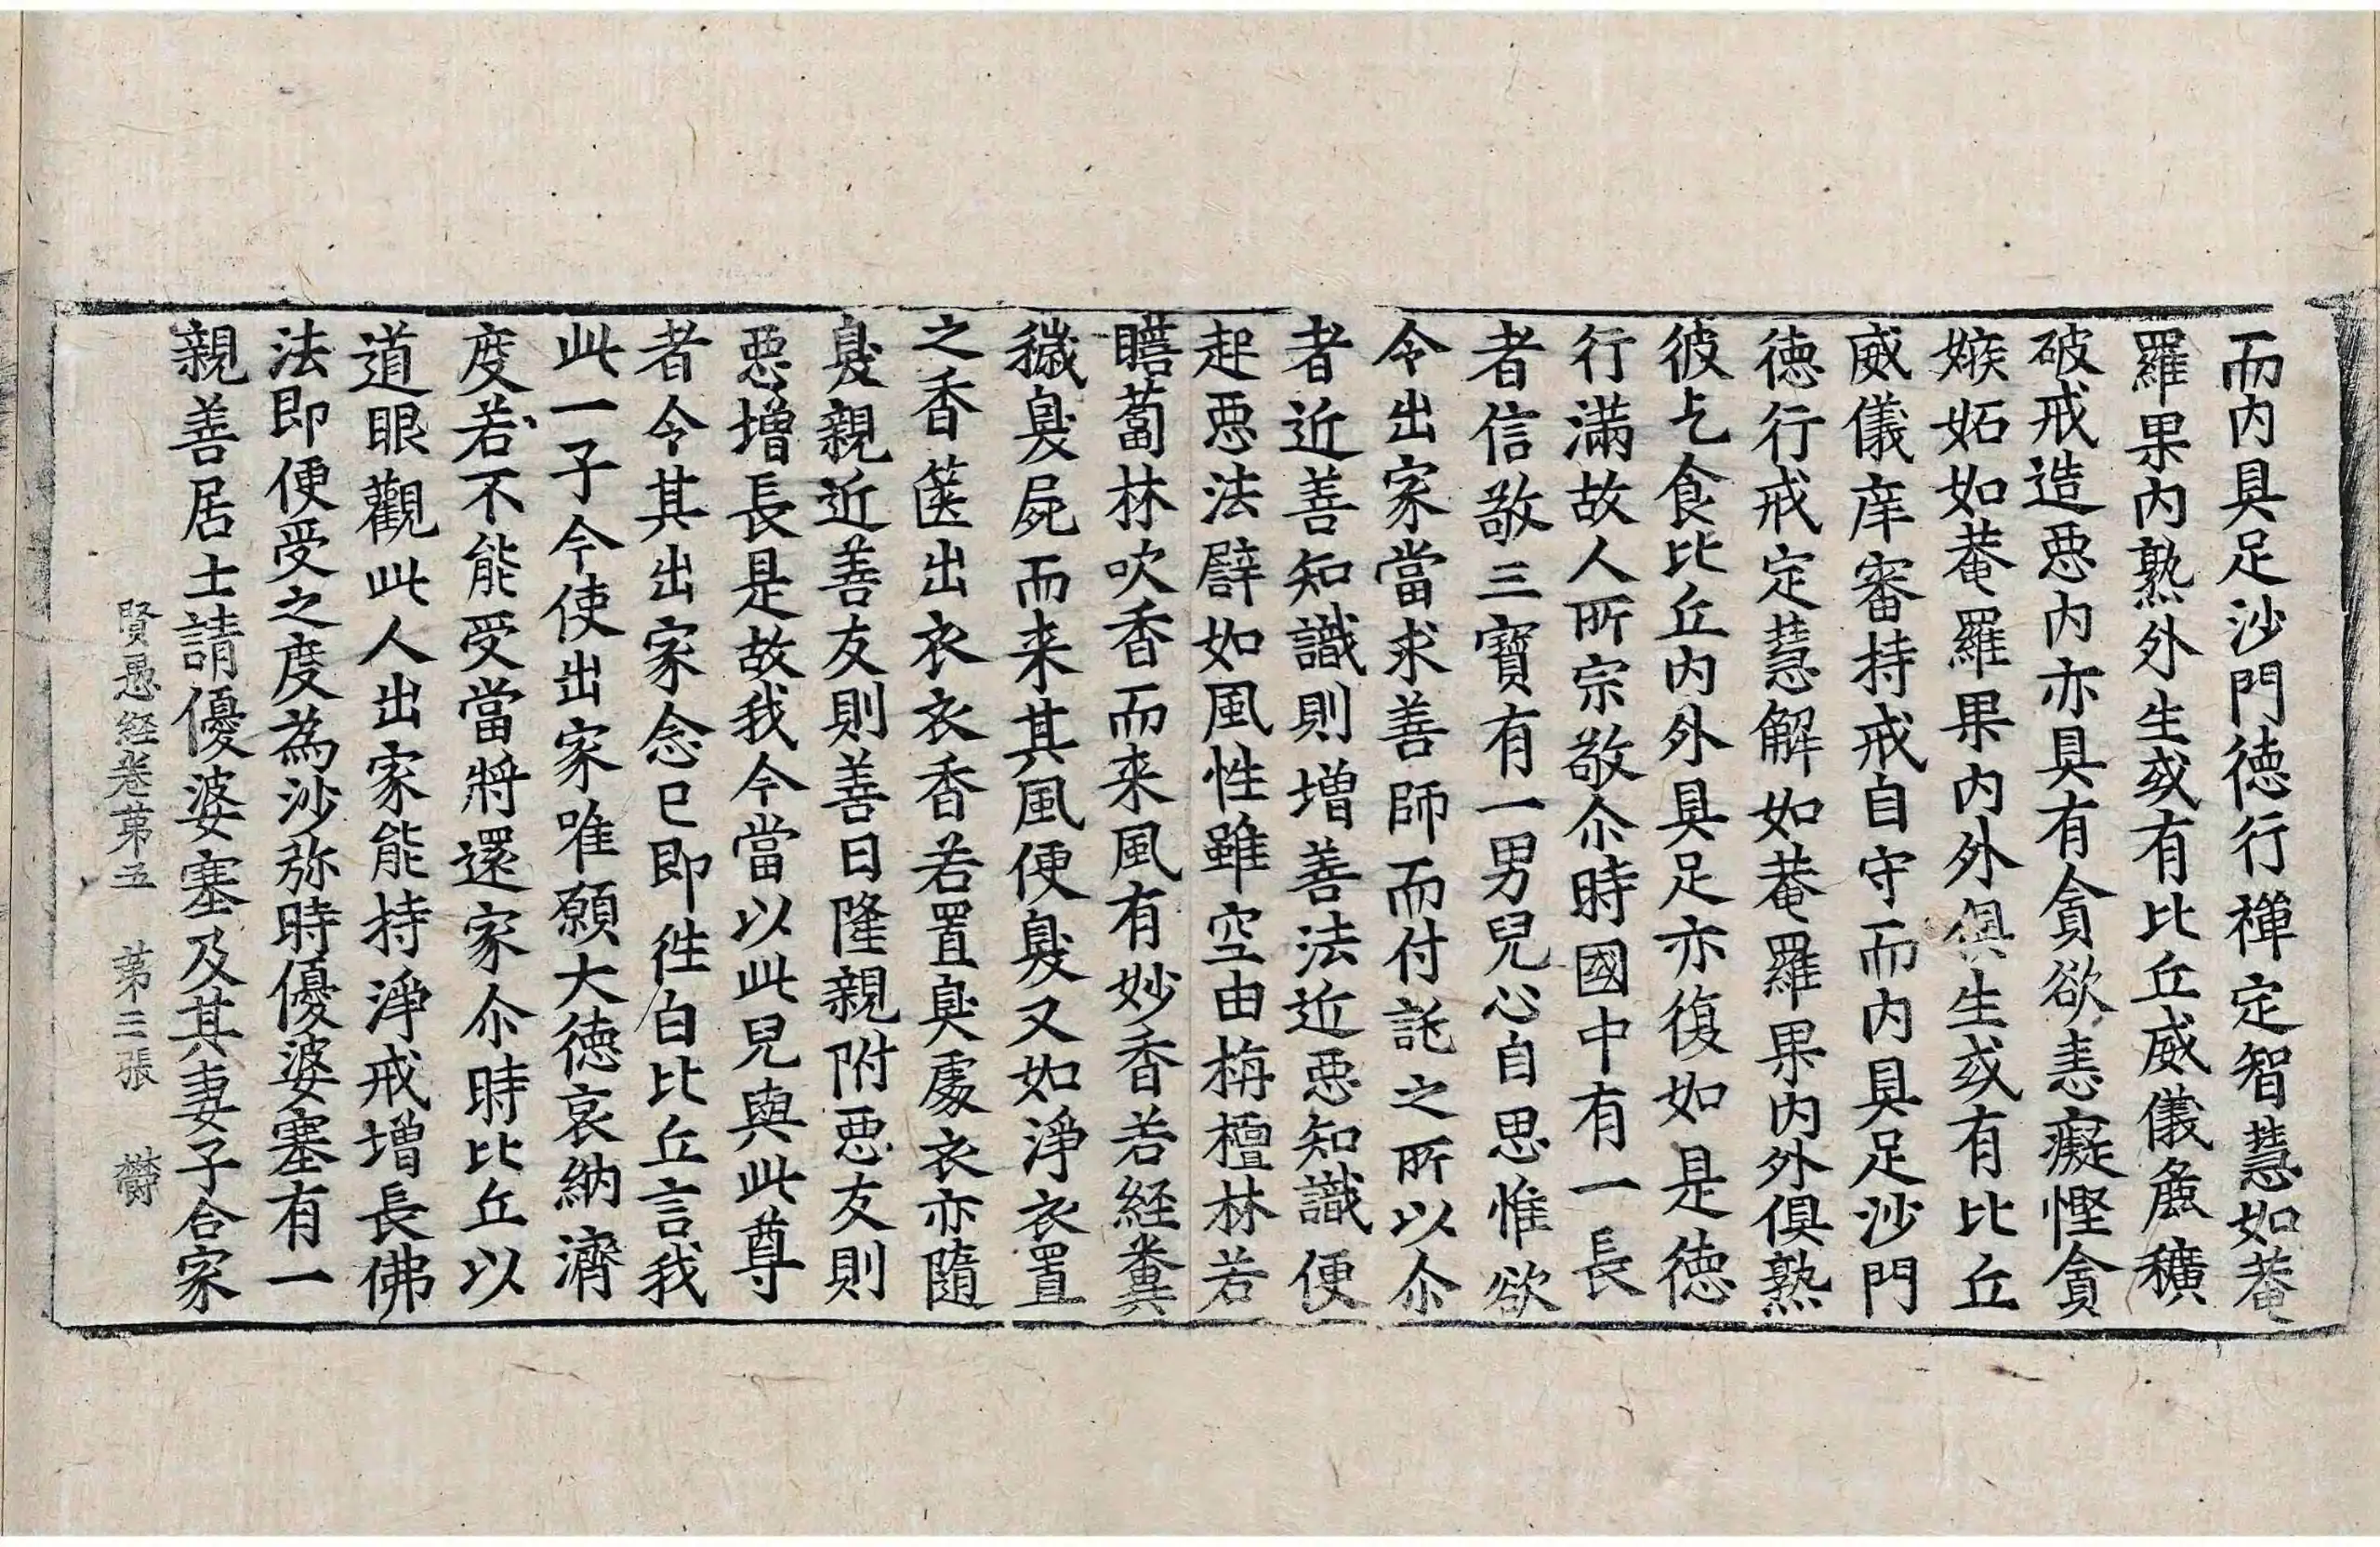 而内具足沙門德行禪定智慧如菴
羅果内熟外生或有比丘威儀麁穬
破戒造惡内亦具有貪欲恚癡慳貪
嫉妬如菴羅果内外俱生或有比丘
威儀庠審持戒自守而内具足沙門
德行戒定慧解如菴羅果内外俱熟
彼乞食比丘内外具足亦復如是德
行滿故人所宗敬尒時國中有一長
者信敬三寶有一男兒心自思惟欲
令出家當求善師而付託之所以尒
者近善知識則增善法近惡知識便
起惡法譬如風性雖空由栴檀林若
瞻蔔林吹香而来風有妙香若経糞
穢臭屍而来其風便臭又如淨衣置
之香篋出衣衣香若置臭處衣亦隨
臭親近善友則善日隆親附惡友則
惡增長是故我今當以此兒與此尊
者令其出家念已即徃白比丘言我
此一子今使出家唯願大德哀納濟
度若不能受當將還家尒時比丘以
道眼觀此人出家能持淨戒增長佛
法即便受之度為沙弥時優婆塞有一
親善居士請優婆塞及其妻子合家
賢愚経卷苐五　苐三張　欝